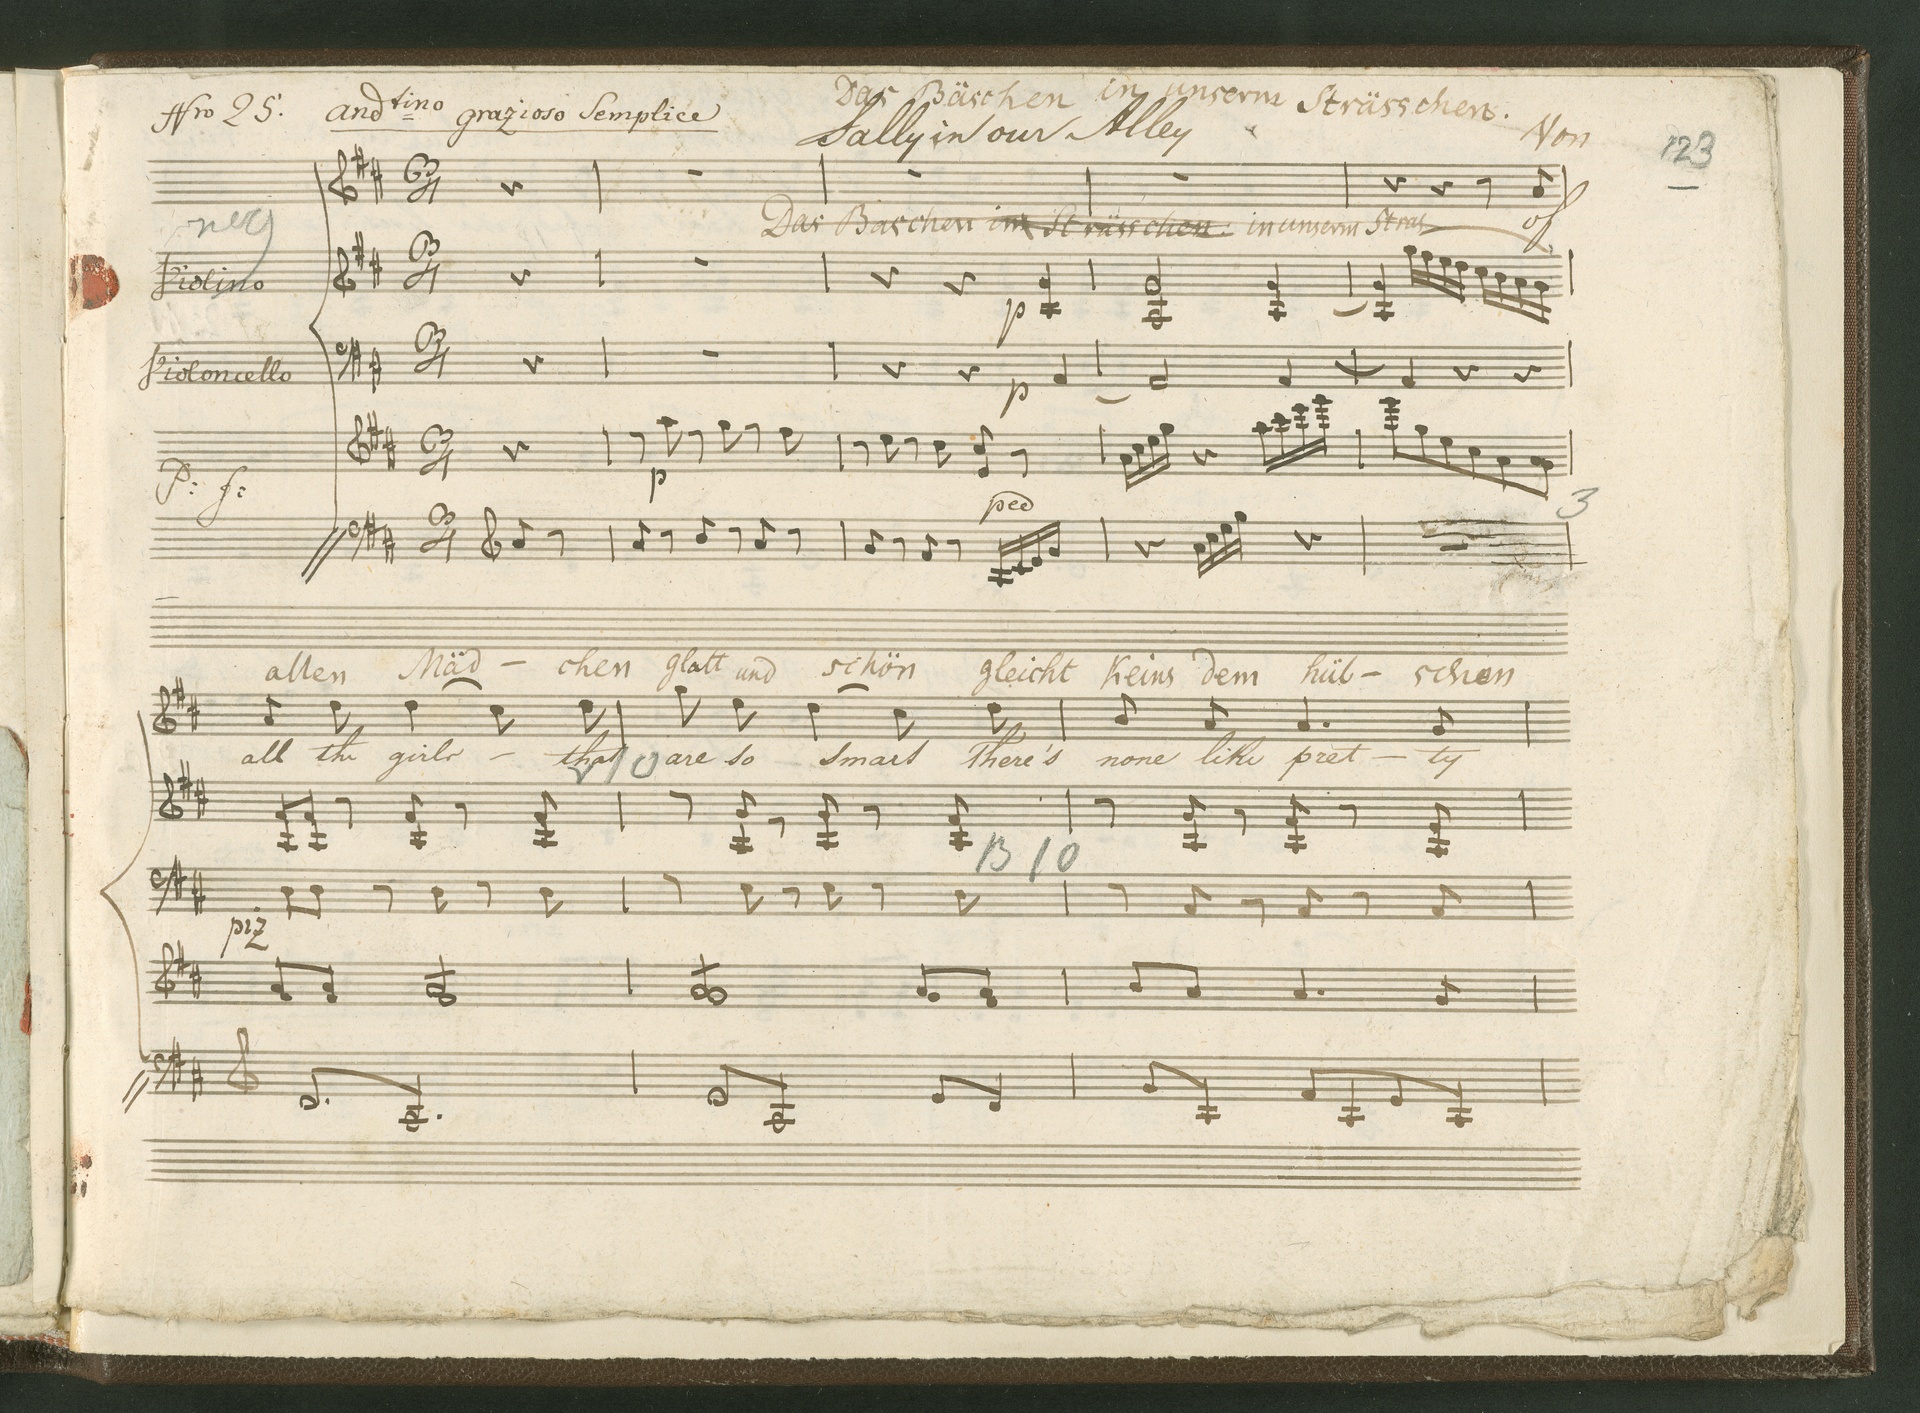 Nro 25. andtino grazioso Semplice Das Bäschen in unserm Strässchen.
Sally in our Alley Von
123
Das Baschen im Strässchen. in unserm Stras of
Violino
p
Violoncello
p
p
P: f:
3
ped
allen Mäd - chen glatt und schön gleicht Keins dem hüb - schen
all the girls - that are so smart There's none like pret - ty
V10
B 10
piz